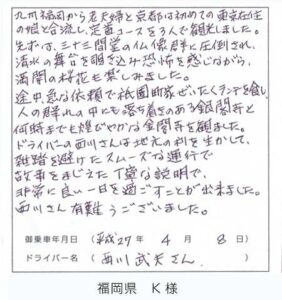 九州福岡から老夫婦と京都は初めての東京在住
の娘と合流し、定番コースを3人で観光しました。
先ずは、三十三間堂の仏像群に圧倒され、
清水の舞台を覗き込み恐怖を感じながら、
満開の桜花も楽しみました。
途中急な依頼で祇園町家ぜいたくランチを食し
人の群れの中にも落ち着きのある銀閣寺と
何時までも煌びやかな金閣寺を観ました。
ドライバーの西川さんは地元の利を生かして、
雑踏を避けたスムーズな運行で
故事をまじえた丁寧な説明で、
非常に良い一日を過ごすことが出来ました。
西川さん有難うございました。
御乗車年月日 (平成27年 4月 8日)
ドライバー名 (西川 武夫さん)
福岡県 K様